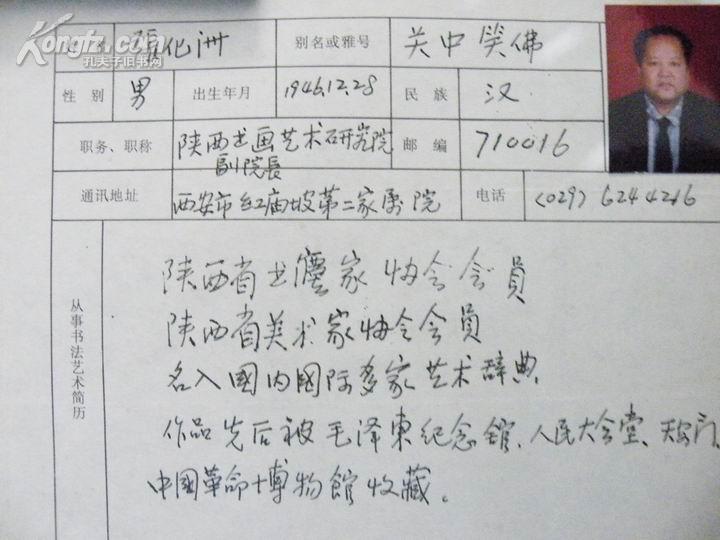 Kongfz.com
孔夫子旧书网
张化洲 别名或雅号 关中笑佛
性别 男 出生年月 1946.12.28 民族 汉
职务、职称 陕西书画艺术研究院 邮编 710016
副院長
通讯地址 西安市红庙坡第二家属院 电话 (029) 6244216
从事书法艺术简历
陕西省书法家协会会員
陕西省美术家协会会員
名入國内國际多家艺术辞典
作品先后被毛泽東纪念館、人民大会堂、天安门、
中國革命博物館收藏。